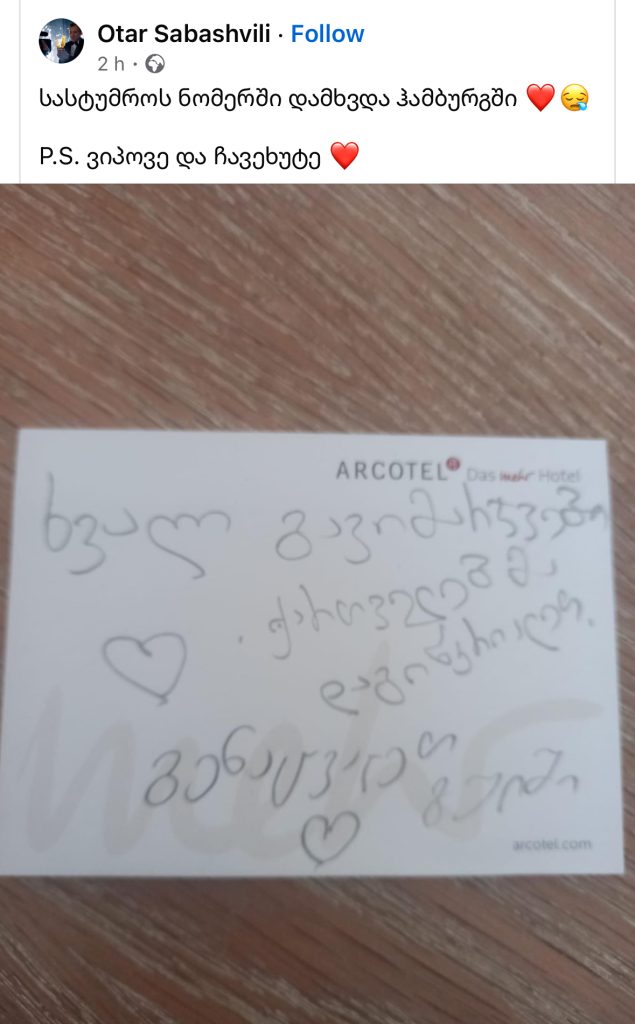 Otar Sabashvili · Follow
2 h ·
სასტუმროს ნომერში დამხვდა ჰამბურგში ❤️😪
P.S. ვიპოვე და ჩავეხუტე ❤️
ARCOTEL Das mehr Hotel
ხვალ გავიმარჯვებთ
ქართველებმა
დაგიწკრიალეთ.
გენაცვალეთ გუიში
mehr
arcotel.com